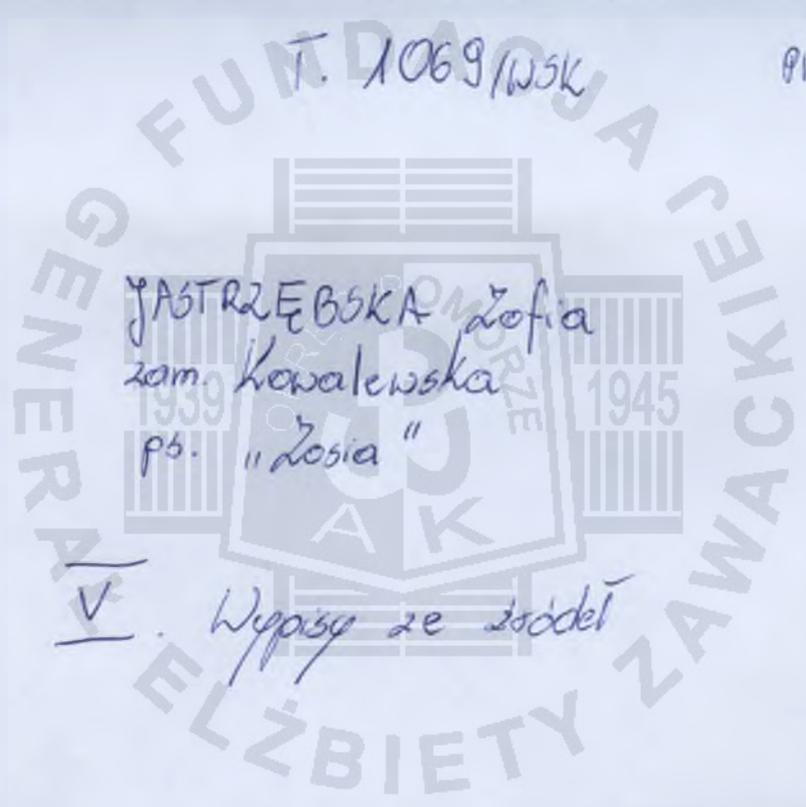 T. 1069/WSK
JASTRZĘBSKA Zofia
zam. Kowalewska
ps. "Zosia"
V. Wypisy ze źródeł
FUNDACJA GENERAŁ ELŻBIETY ZAWACKIEJ
POMORZE
1939 1945
AK